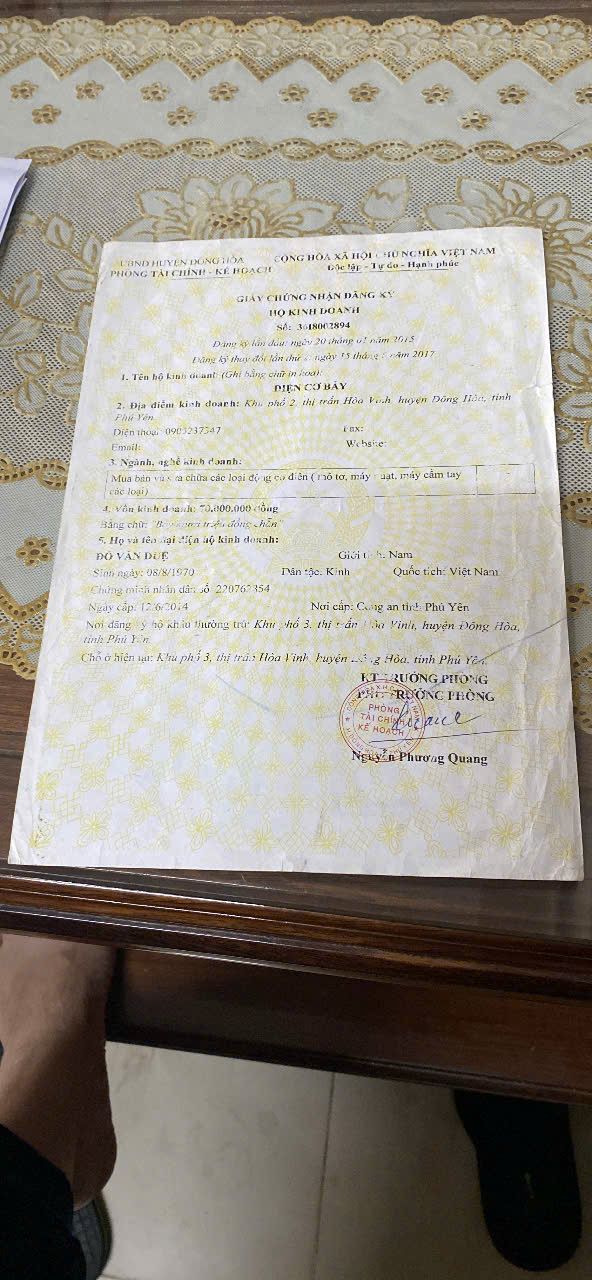 UBND HUYỆN ĐÔNG HÒA
PHÒNG TÀI CHÍNH - KẾ HOẠCH
CỘNG HÒA XÃ HỘI CHỦ NGHĨA VIỆT NAM
Độc lập - Tự do - Hạnh phúc
GIẤY CHỨNG NHẬN ĐĂNG KÝ
HỘ KINH DOANH
Số: 3618002894
Đăng ký lần đầu: ngày 20 tháng 01 năm 2015
Đăng ký thay đổi lần thứ ngày 15 tháng năm 2017
1. Tên hộ kinh doanh: (Ghi bằng chữ in hoa):
ĐIỆN CƠ BẢY
2. Địa điểm kinh doanh: Khu phố 2, thị trấn Hòa Vinh, huyện Đông Hòa, tỉnh
Phú Yên
Điện thoại: 0905237347 Fax:
Email: Website:
3. Ngành, nghề kinh doanh:
Mua bán và sửa chữa các loại động cơ điện ( mô tơ, máy quạt, máy cầm tay
các loại)
4. Vốn kinh doanh: 70.000.000 đồng
Bằng chữ: "Bảy mươi triệu đồng chẵn"
5. Họ và tên đại diện hộ kinh doanh:
ĐỖ VĂN DUỆ Giới tính: Nam
Sinh ngày: 08/8/1970 Dân tộc: Kinh Quốc tịch: Việt Nam
Chứng minh nhân dân số: 220762354
Ngày cấp: 12/6/2014 Nơi cấp: Công an tỉnh Phú Yên
Nơi đăng ký hộ khẩu thường trú: Khu phố 3, thị trấn Hòa Vinh, huyện Đông Hòa,
tỉnh Phú Yên.
Chỗ ở hiện tại: Khu phố 3, thị trấn Hòa Vinh, huyện Đông Hòa, tỉnh Phú Yên.
KT TRƯỞNG PHÒNG
PHÓ TRƯỞNG PHÒNG
PHÒNG
TÀI CHÍNH
KẾ HOẠCH
Nguyễn Phương Quang